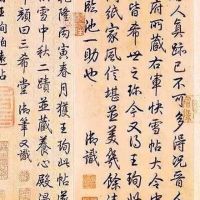 人真跡已不可多得況晉人
府所藏右軍快雪帖大令中
皆希世之珍今又得王珣此
紙家風信堪並美幾餘清
臨池一助也 御識
乾隆丙寅春月獲王珣此帖遂
雪中秋二蹟並藏養心殿溫
顏曰三希堂 御筆又識
珣伯遠帖